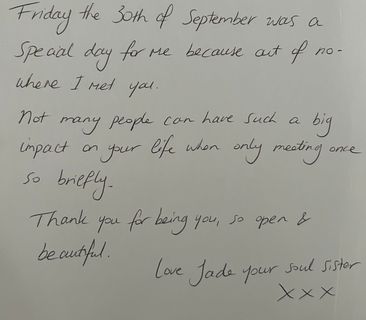 Friday the 30th of September was a
special day for me because out of no-
where I met you.
Not many people can have such a big
impact on your life when only meeting once
so briefly.
Thank you for being you, so open &
beautiful.
Love Jade your soul sister
xxx